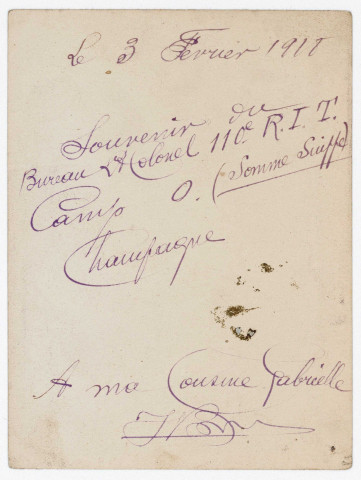 Le 3 Fevrier 1918
Souvenir du
Bureau Lt Colonel 110e R.I.T.
Camp O. (Somme Suippe)
Champagne
A ma Cousine Gabrielle